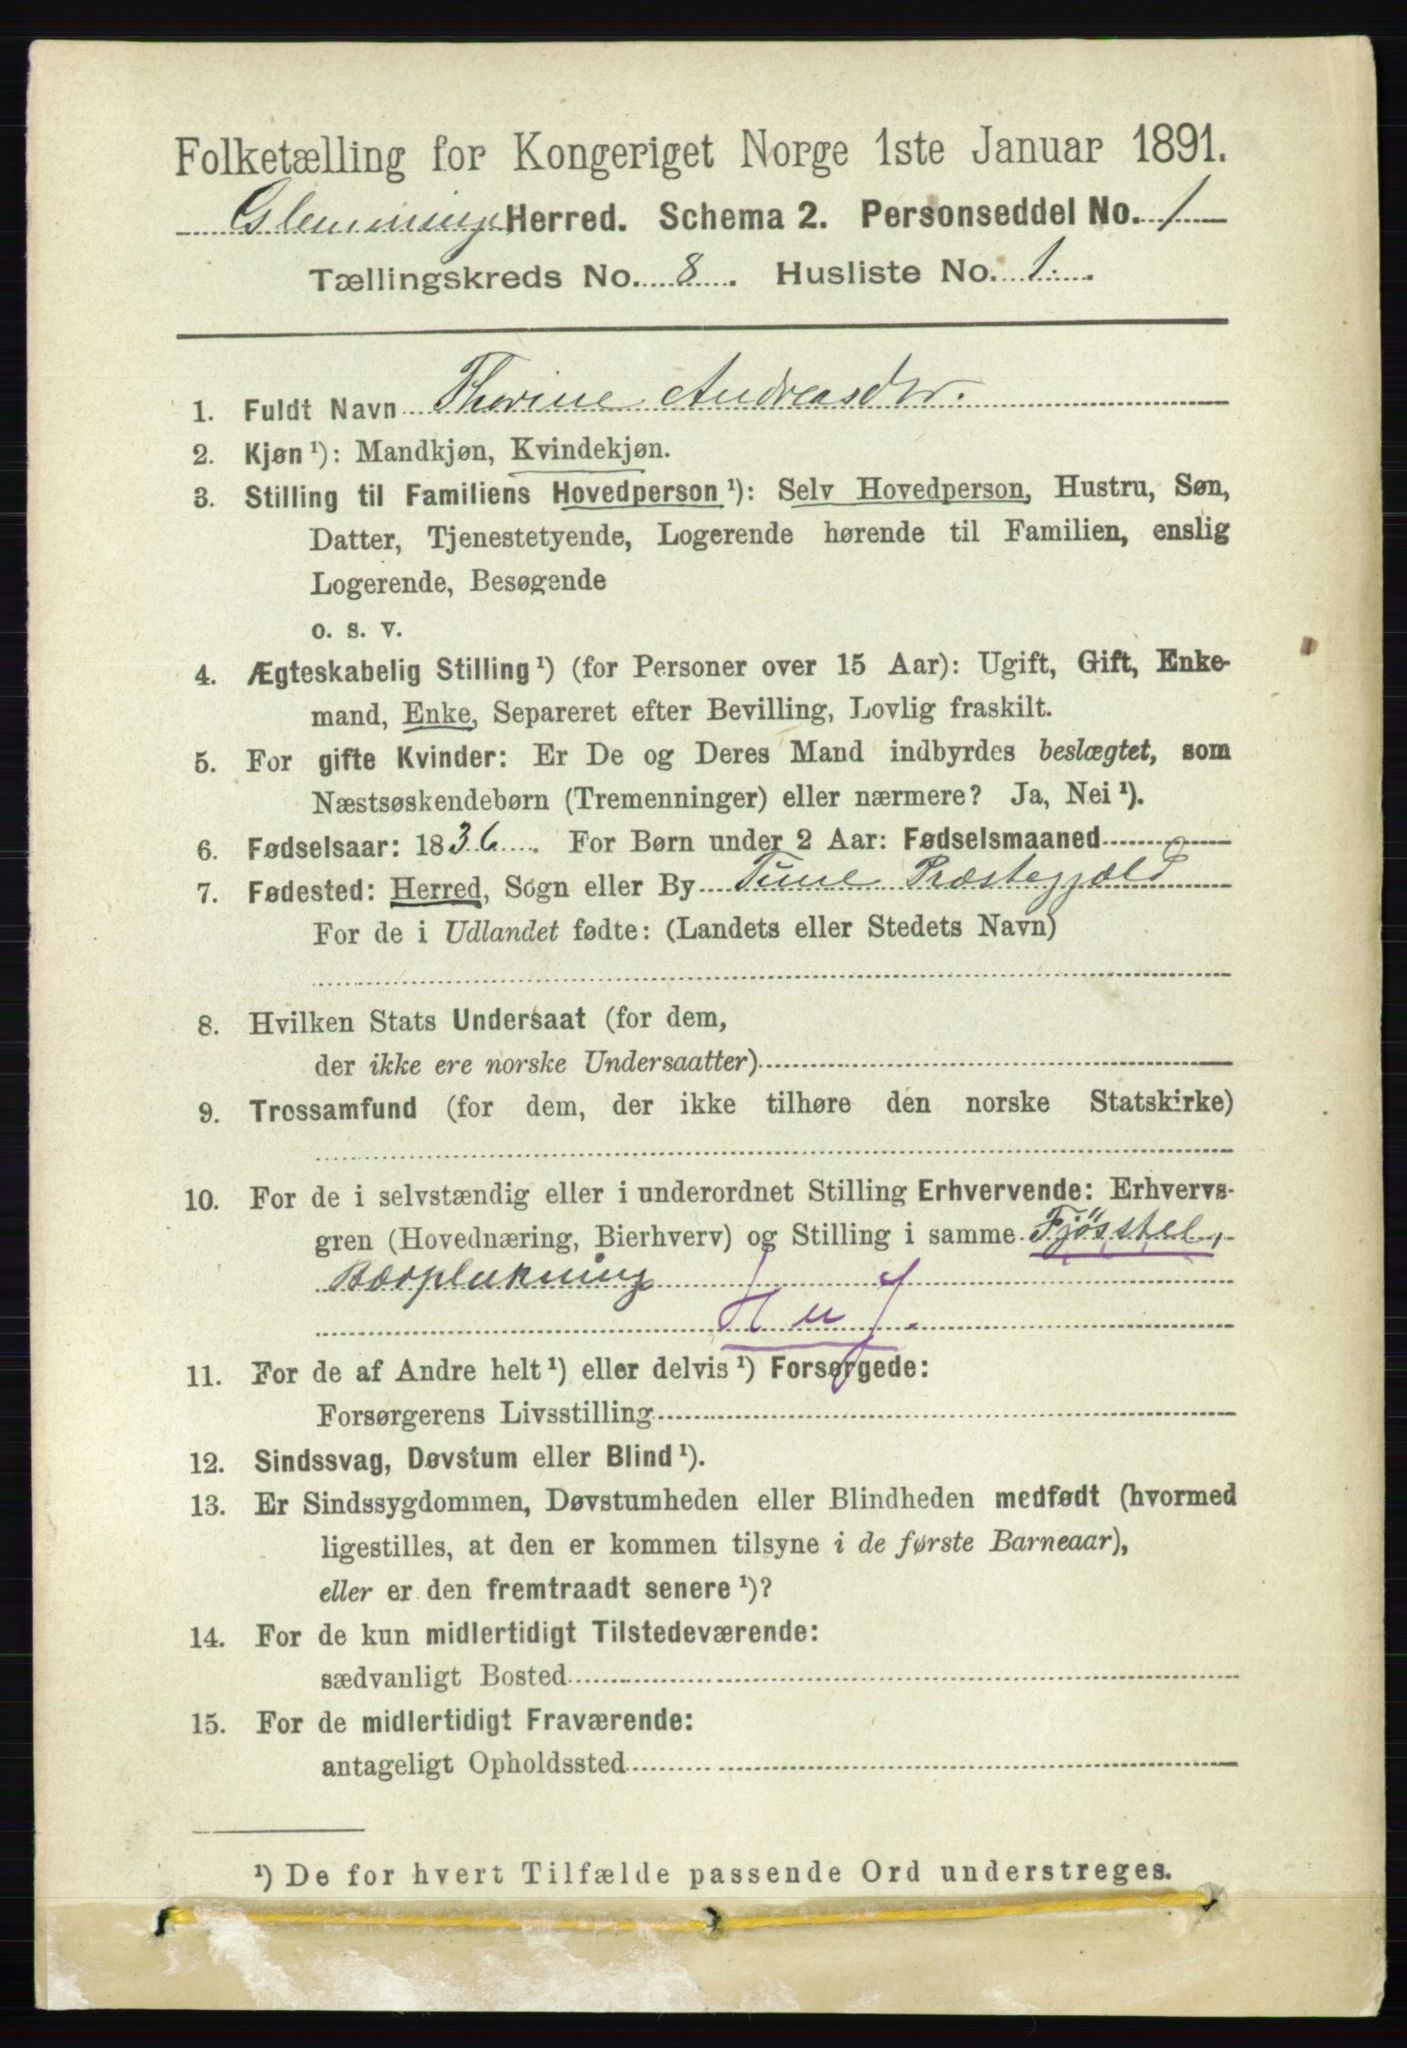 Folketælling for Kongeriget Norge 1ste Januar 1891.
Glemminge Herred. Schema 2. Personseddel No. 1
Tællingskreds No. 8. Husliste No. 1.
1. Fuldt Navn Thorine Andreasdtr.
2. Kjøn ¹): Mandkjøn, Kvindekjøn.
3. Stilling til Familiens Hovedperson ¹): Selv Hovedperson, Hustru, Søn,
Datter, Tjenestetyende, Logerende hørende til Familien, enslig
Logerende, Besøgende
o. s. v.
4. Ægteskabelig Stilling ¹) (for Personer over 15 Aar): Ugift, Gift, Enke-
mand, Enke, Separeret efter Bevilling, Lovlig fraskilt.
5. For gifte Kvinder: Er De og Deres Mand indbyrdes beslægtet, som
Næstsøskendebørn (Tremenninger) eller nærmere? Ja, Nei ¹).
6. Fødselsaar: 1836. For Børn under 2 Aar: Fødselsmaaned
7. Fødested: Herred, Sogn eller By Tune Præstegjæld
For de i Udlandet fødte: (Landets eller Stedets Navn)
8. Hvilken Stats Undersaat (for dem,
der ikke ere norske Undersaatter)
9. Trossamfund (for dem, der ikke tilhøre den norske Statskirke)
10. For de i selvstændig eller i underordnet Stilling Erhvervende: Erhvervs-
gren (Hovednæring, Bierhverv) og Stilling i samme Fjösstel,
Bærplukning
H u f.
11. For de af Andre helt ¹) eller delvis ¹) Forsørgede:
Forsørgerens Livsstilling
12. Sindssvag, Døvstum eller Blind ¹).
13. Er Sindssygdommen, Døvstumheden eller Blindheden medfødt (hvormed
ligestilles, at den er kommen tilsyne i de første Barneaar),
eller er den fremtraadt senere ¹)?
14. For de kun midlertidigt Tilstedeværende:
sædvanligt Bosted
15. For de midlertidigt Fraværende:
antageligt Opholdssted
¹) De for hvert Tilfælde passende Ord understreges.